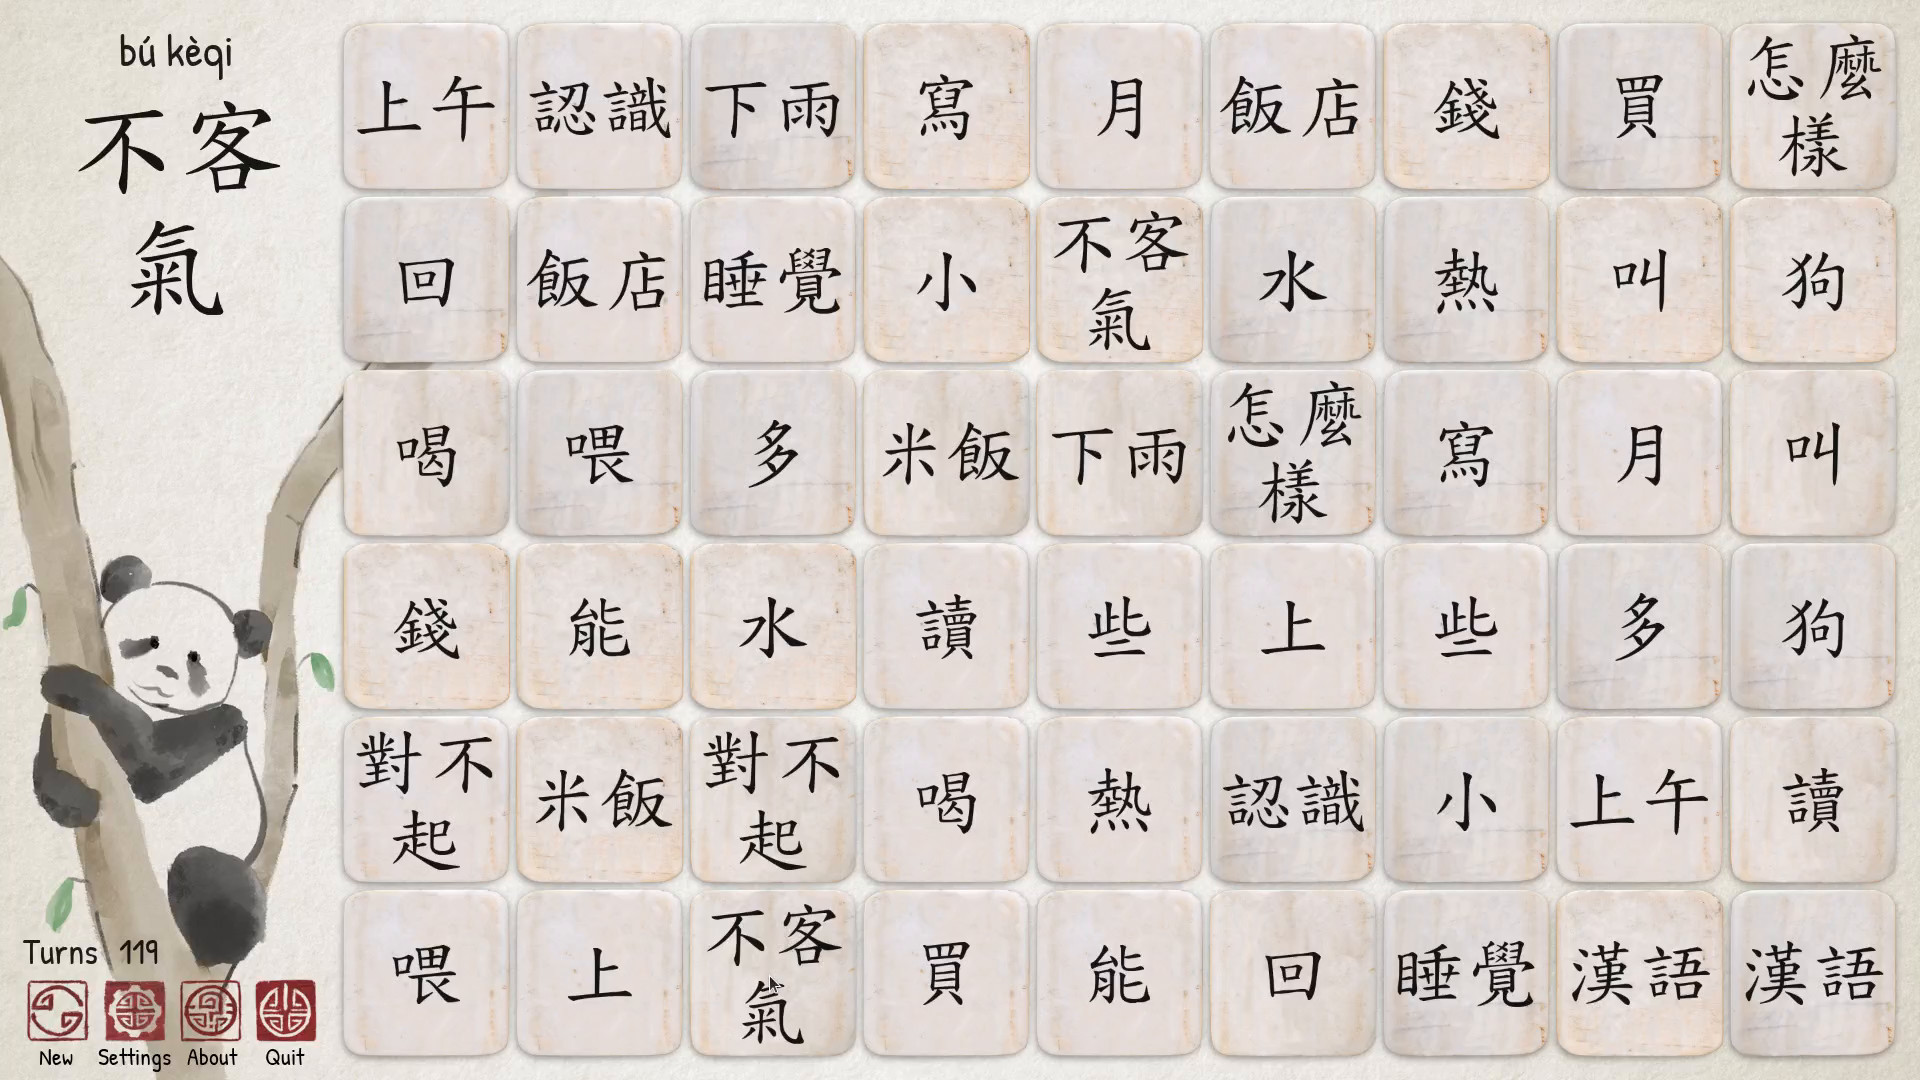 bú kèqi
不客
氣
上午 認識 下雨 寫 月 飯店 錢 買 怎麼
樣
回 飯店 睡覺 小 不客
氣 水 熱 叫 狗
喝 喂 多 米飯 下雨 怎麼
樣 寫 月 叫
錢 能 水 讀 些 上 些 多 狗
對不
起 米飯 對不
起 喝 熱 認識 小 上午 讀
喂 上 不客
氣 買 能 回 睡覺 漢語 漢語
Turns 119
New Settings About Quit